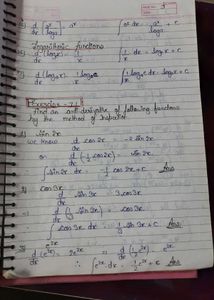 d/dx [a^x/log a] = a^x ∫a^x dx = a^x/log a + c
Logarithmic functions
d/dx (log x) = 1/x ∫1/x dx = log x + c
Exercise - 7.1
Find an anti derivative of following functions
by the method of Inspection
1) sin 2x
we know d/dx cos 2x = -2 sin 2x
or d/dx (-1/2 cos 2x) = sin 2x
∫sin 2x dx = -1/2 cos 2x + c Ans
2) cos 3x
d/dx sin 3x = 3 cos 3x
d/dx (1/3 sin 3x) = cos 3x
∫cos 3x dx = 1/3 sin 3x + c Ans
3) e^2x
d/dx (e^2x) = 2e^2x ⇒ d/dx (1/2 e^2x) = e^2x
∴ ∫e^2x dx = 1/2 e^2x + c Ans